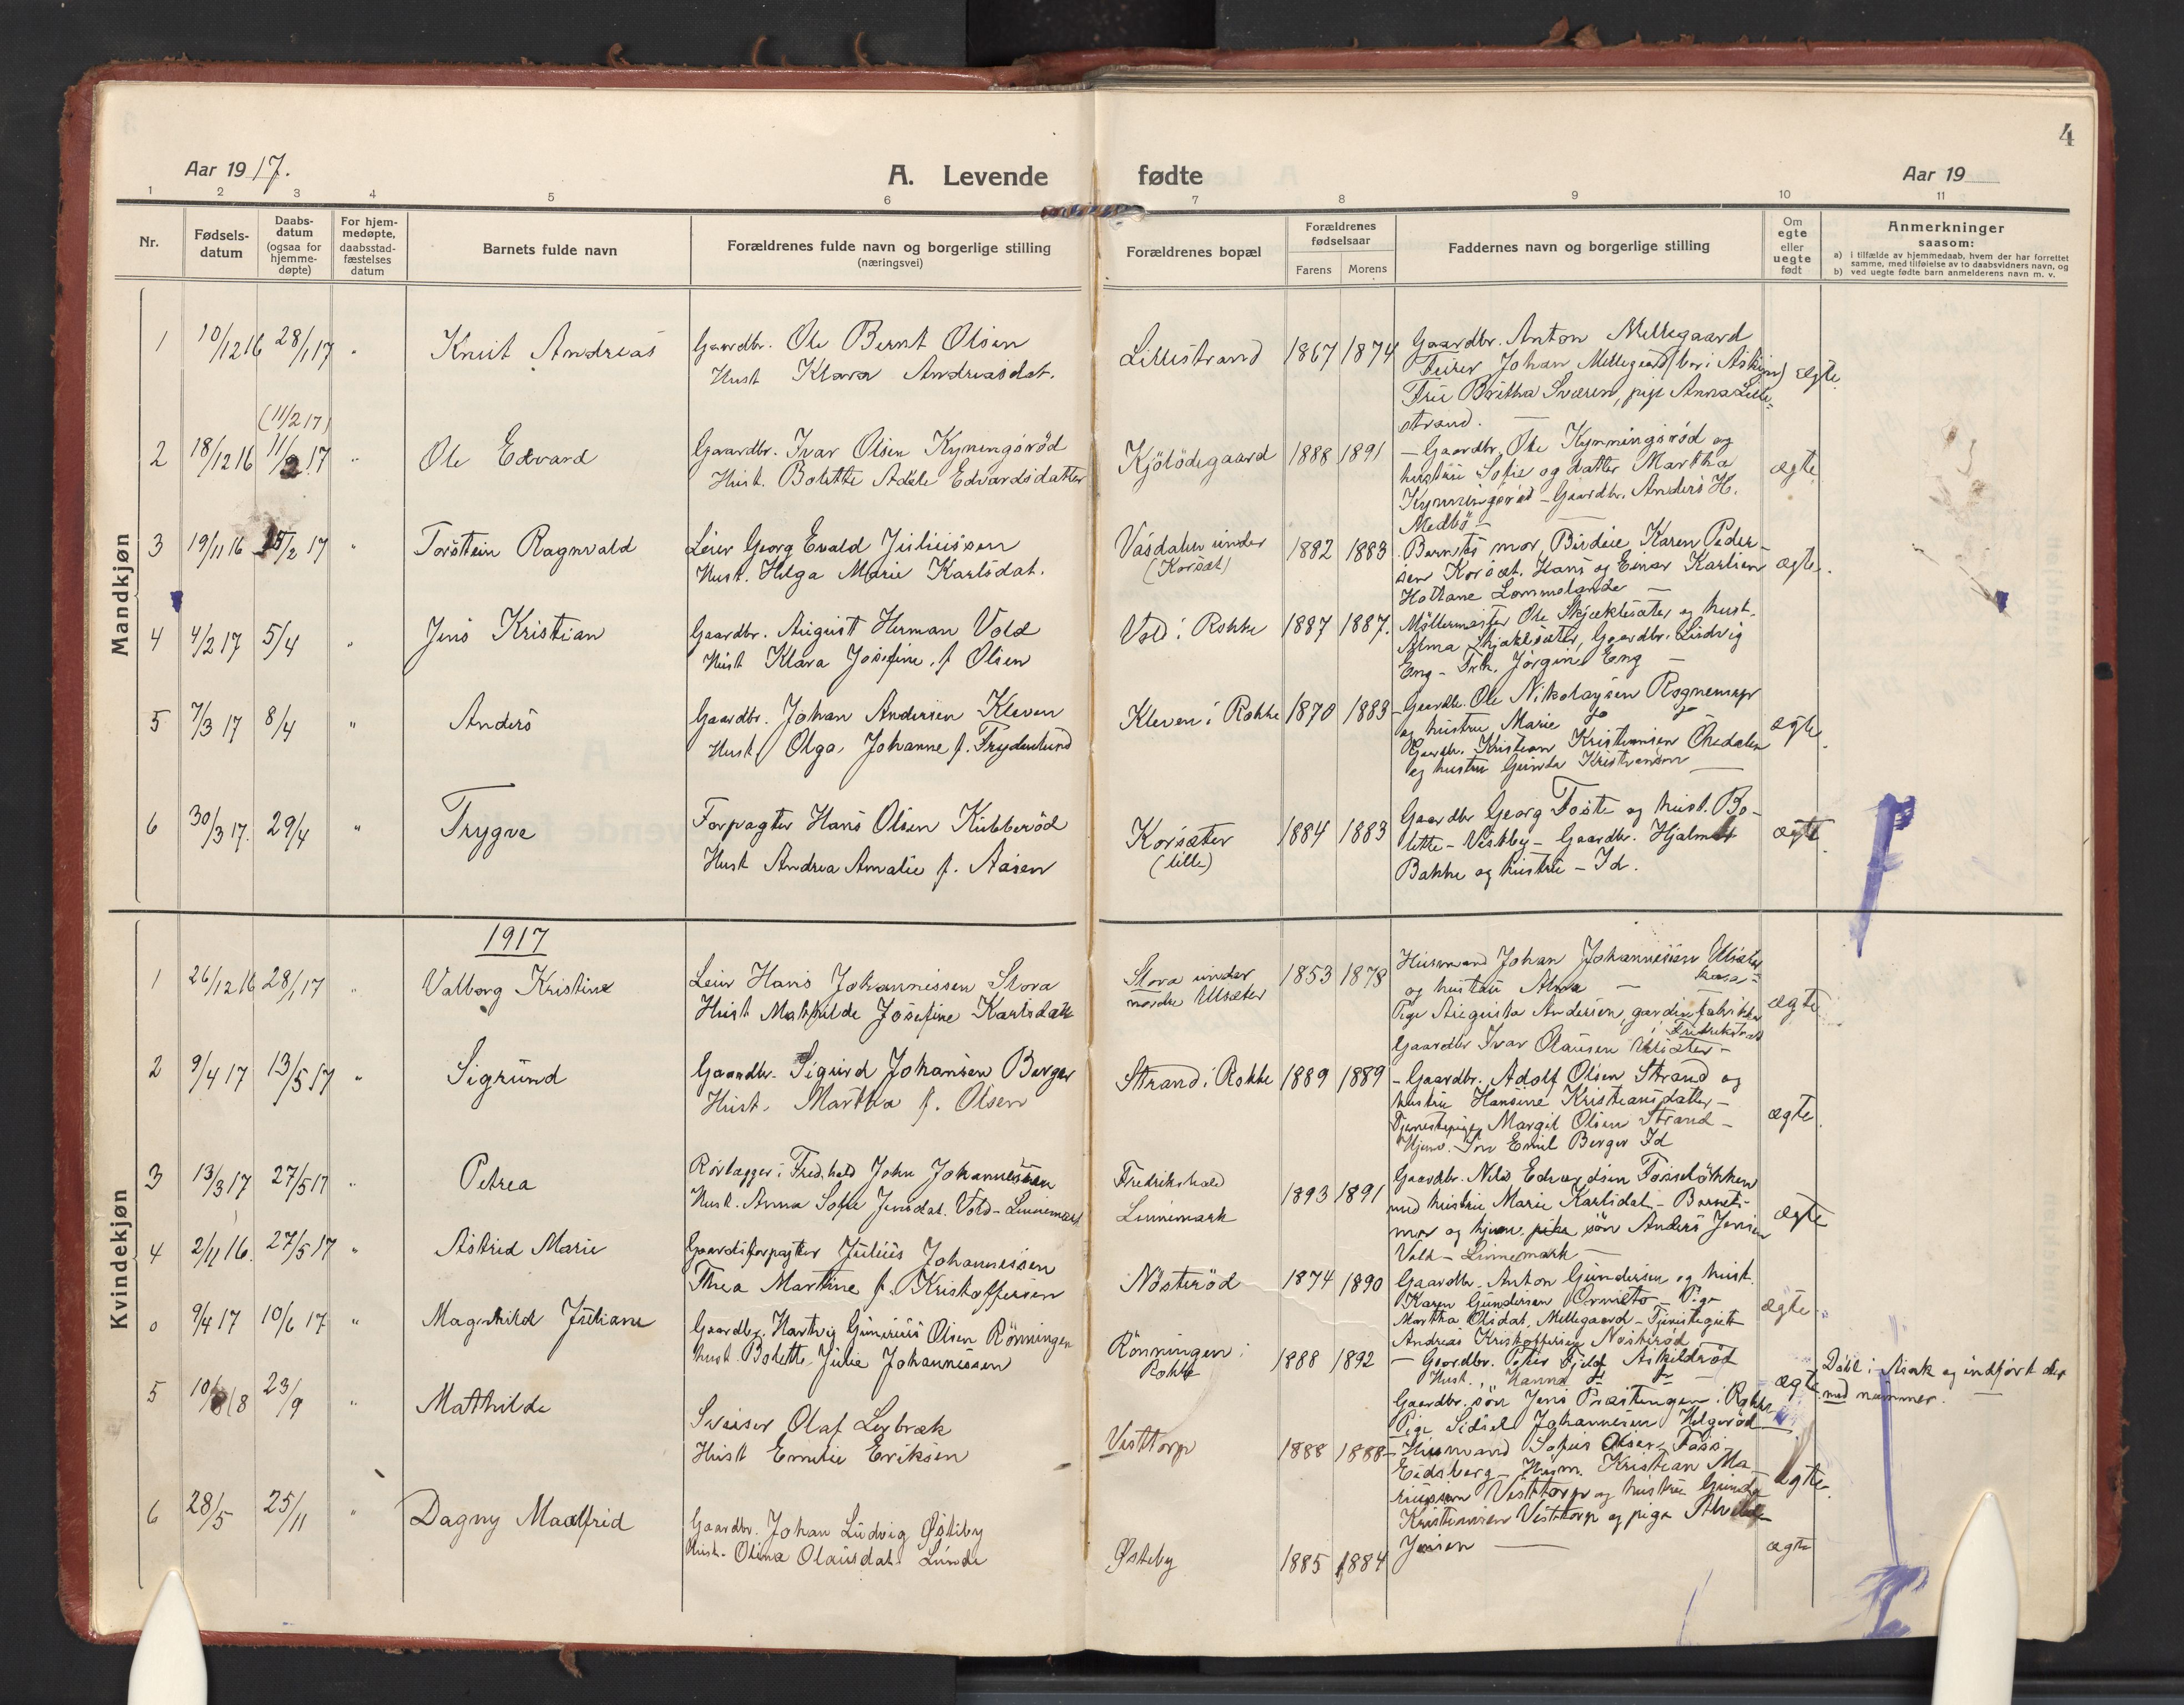 4
Aar 1917.
A. Levende fødte
Aar 19
1 2 3 4 5 6 7 8 9 10 11
Nr.
Fødsels-
datum
Daabs-
datum
(ogsaa for
hjemme-
døpte)
For hjem-
medøpte,
daabsstad-
fæstelses
datum
Barnets fulde navn
Forældrenes fulde navn og borgerlige stilling
(næringsvei)
Forældrenes bopæl
Forældrenes
fødselsaar
Farens Morens
Faddernes navn og borgerlige stilling
Om
egte
eller
uegte
født
Anmerkninger
saasom:
a) i tilfælde av hjemmedaab, hvem der har forrettet
samme, med tilføielse av to daabsvidners navn, og
b) ved uegte fødte barn anmelderens navn m. v.
Mandkjøn
1 10/12 16 28/1 17 " Knut Andreas
Gaardbr. Ole Bernt Olsen
Hust Klara Andreasdat.
Lillestrand 1867 1874
Gaardbr. Anton Mellegaard
Feier Johan Mellegaard (bor i Askim)
Fru Beritha Sværen, pige Anna Lille-
strand.
ægte.
(11/2 17)
2 18/12 16 11/2 17 " Ole Edvard
Gaardbr. Ivar Olsen Kynningsrød
Hust. Bolette Adele Edvardsdatter
Kjølødegaard 1888 1891
– Gaardbr. Ole Kynningsrød og
hustru Sofie og datter Martha
Kynningsrød – Gaardbr. Anders H.
Medbö –
ægte
3 19/11 16 15/2 17 " Torstein Ragnvald
Leier Georg Evald Juliussen
Hust. Helga Marie Karlsdat.
Vasdalen under
(Korsæt)
1882 1883
Barnets mor, Birdeie Karen Peder-
sen Korsæt. Hans og Einar Karlsen
Holtane Lommelande –
ægte.
4 4/2 17 5/4 " Jens Kristian
Gaardbr. August Herman Vold
Hust Klara Josefine f. Olsen
Vold i Rokke 1887 1887.
Møllermester Ole Skjæklesæter og hust.
Alma Skjæklesæter, Gaardbr. Ludvig
Eng – Frk. Jørgine Eng –
5 7/3 17 8/4 " Anders
Gaardbr. Johan Andersen Kleven
Hust Olga Johanne f. Frydenlund
Kleven i Rokke 1870 1883
– Gaardbr. Ole Nikolaysen
og hustru Marie
Gaardbr. Kristian Kristiansen
og hustru Gunda Kristiansen –
ægte.
6 30/3 17. 29/4 " Trygve
Forpagter Hans Olsen Kubberød
Hust Andrea Amalie f. Aasen
Korsæter
(lille)
1884 1883
Gaardbr Georg Foste og hust. Bo-
lette – Vestby – Gaardbr. Hjalmar
Bakke og hustru – Id.
ægte.
Kvindekjøn
1917
1 26/12 16 28/1 17 " Valborg Kristine
Leier Hans Johannissen Stora
Hust Mathilde Josefine Karlsdatt
Stora under
nordre Ulsæter
1853 1878
Husmand Johan Johannissen Ulsæter
og hustru Alma –
Pige Augusta Andersen, gardinfabrikken
i Fredrikstad
Gaardbr Ivar Olausen Ulsæter –
ægte
2 9/4 17 13/5 17 " Sigrund
Gaardbr. Sigurd Johansen Berger
Hust. Martha f. Olsen
Strand i Rokke 1889 1889
– Gaardbr. Adolf Olsen Strand og
hustru Hansine Kristiansdatter –
Tjenestepige Margit Olsen Strand –
Hjem. Søn Emil Berger Id
ægte.
3 13/3 17 27/5 17 " Petrea
Rørlægger i Fred.hald John Johannessen
Hust. Anna Sofie Jensdat. Vold – Linnemark
Fredrikshald
Linnemark
1893 1891
Gaardbr. Nils Edvardsen Fosseløkken
med hustru Marie Karlsdat – Barnets
mor og hjem. pike søn Anders Jensen
Vold – Linnemark –
ægte
4 2/11 16. 27/5 17 " Astrid Marie
Gaardsforpagter Julius Johannissen
Thea Martine f. Kristoffersen
Nösteröd 1874 1890
Gaardbr. Anton Gundersen og hust.
Karen Gundersen – Pige
Martha Olsdat. Mellegaard – Tjenestegut
Andreas Kristoffersen Nösteröd
ægte
0 9/4 17 10/6 17 " Magnhild Juliane
Gaardbr. Hartvig Gunerius Olsen Rönningen
hust. Bolette Julie Johannissen
Rönningen i
Rokke
1888 1892
– Gaardbr. Peter Askildröd
Hust., Hanna
Gaardbr. søn Jens Præstengen i Rokke
Pige Sidsel Johannesen Helgeröd
ægte
Döbt i Asak og indført der
med nummer. –
5 10/8 23/9 " Mathilde
Sveiser Olaf Lysbræk
Hust Emilie Eriksen
Visttorp 1888 1888
– Husmand Sofus Olsen Foss
Eidsberg – Husm. Kristian Ma-
riussen Visttorp og hustru Gunda
Kristiansen Visttorp og pige Alvilde
Jensen –
ægte.
6 28/5 25/11 " Dagny Maalfrid
Gaardbr. Johan Ludvig Østeby
Hust. Olina Olausdat. Lunde
Østeby 1885 1884
ægte